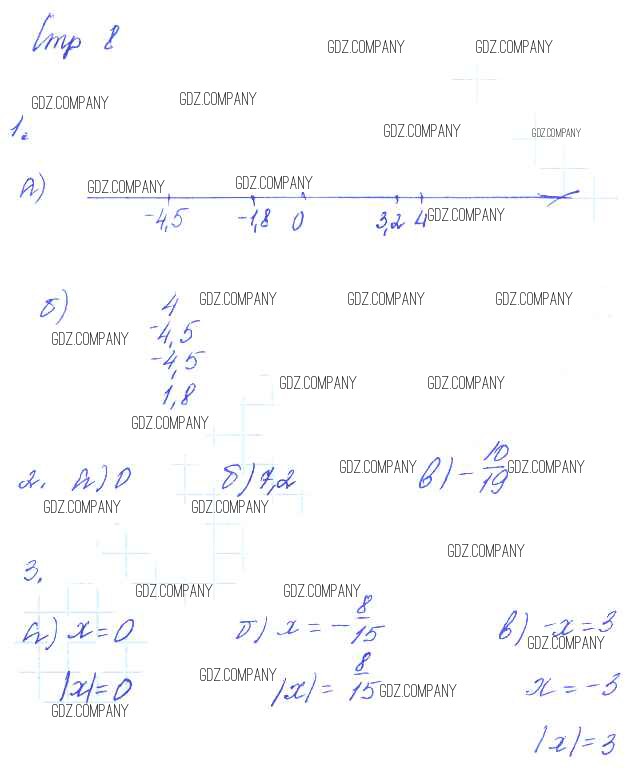 Стр 8
GDZ.COMPANY GDZ.COMPANY
GDZ.COMPANY GDZ.COMPANY
1. GDZ.COMPANY GDZ.COMPANY
а) GDZ.COMPANY GDZ.COMPANY
-4,5 -1,8 0 3,2 4 GDZ.COMPANY
б) 4 GDZ.COMPANY GDZ.COMPANY GDZ.COMPANY
GDZ.COMPANY -4,5
-4,5
GDZ.COMPANY GDZ.COMPANY
1,8
GDZ.COMPANY
2. а) 0 б) 7,2 GDZ.COMPANY в) -10/19 GDZ.COMPANY
GDZ.COMPANY GDZ.COMPANY
GDZ.COMPANY
3.
GDZ.COMPANY GDZ.COMPANY
а) x=0 б) x=-8/15 в) -x=3
GDZ.COMPANY
|x|=0 GDZ.COMPANY |x|=8/15 GDZ.COMPANY x=-3
GDZ.COMPANY
|x|=3